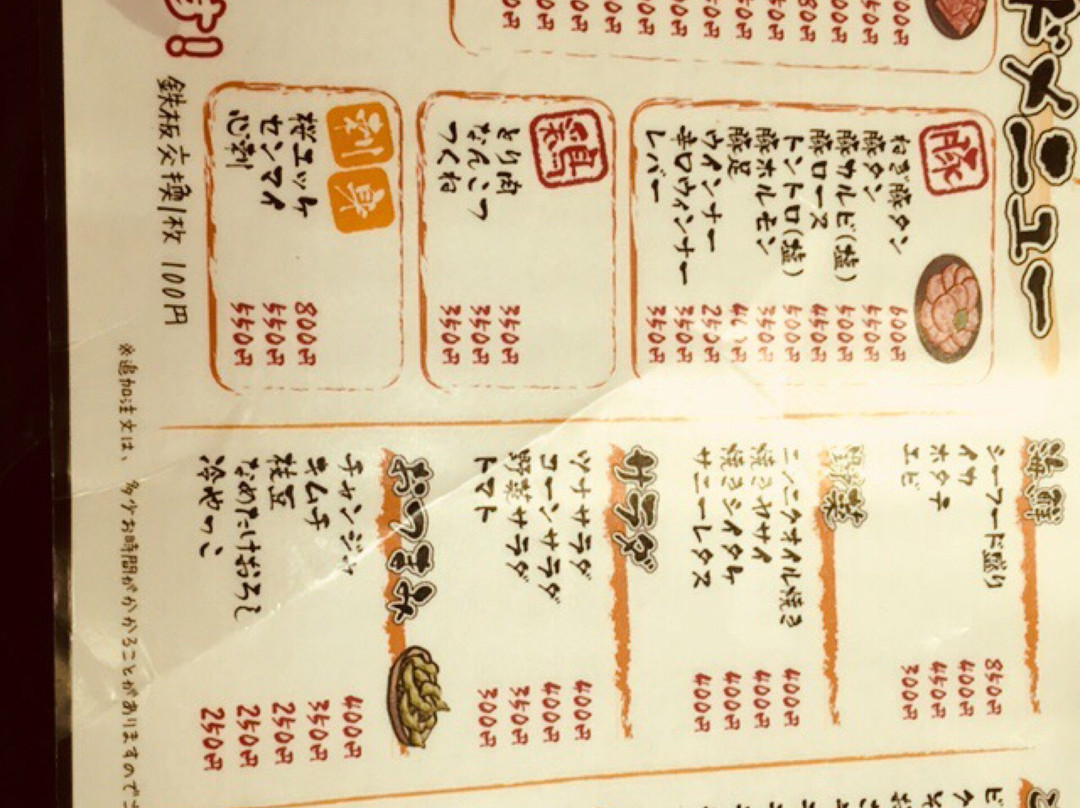 ドメニュー
豚
ねぎ豚タン 600円
豚タン 550円
豚カルビ(塩) 500円
豚ロース 550円
トントロ(塩) 500円
豚ホルモン 350円
豚足 400円
ウインナー 250円
辛口ウィンナー 350円
レバー 350円
鶏
とり肉 350円
なんこつ 350円
つくね 350円
刺身
桜ユッケ 800円
センマイ 550円
心刺 550円
鉄板交換1枚 100円
海鮮
シーフード盛り 850円
イカ 400円
ホタテ 450円
エビ 300円
野菜
ニンニクオイル焼き 400円
焼きヤサイ 400円
焼きシイタケ 400円
サニーレタス 400円
サラダ
ツナサラダ 400円
コーンサラダ 400円
野菜サラダ 350円
トマト 300円
おつまみ
チャンジャ 400円
キムチ 350円
枝豆 250円
なめたけおろし 250円
冷やっこ 250円
※追加注文は、多少お時間がかかることがありますのでご